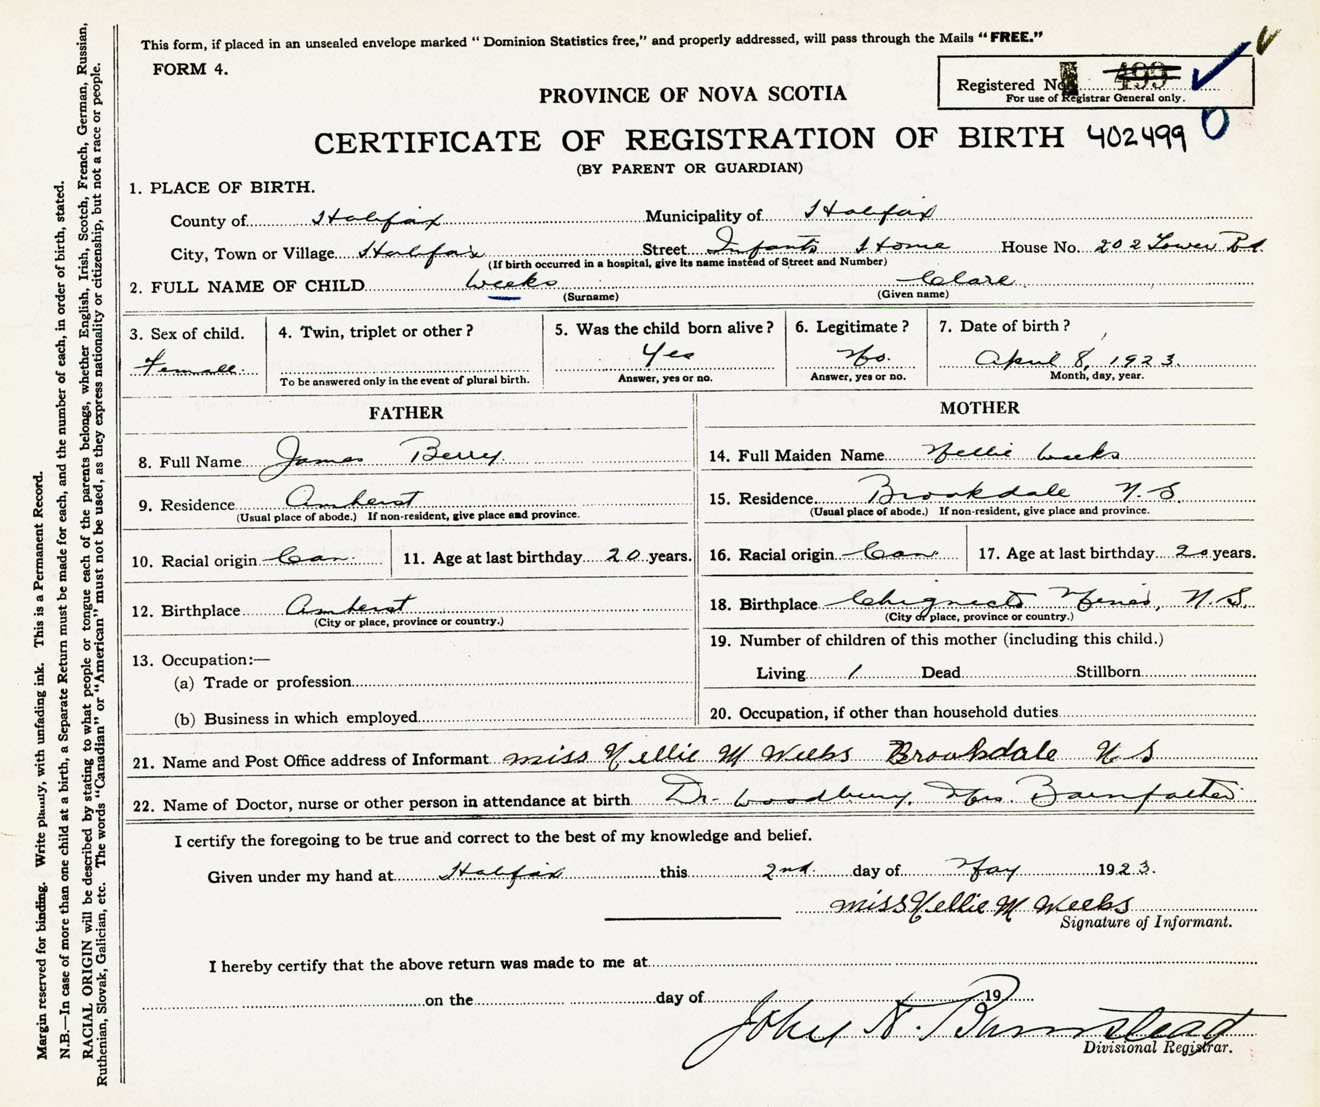 This form, if placed in an unsealed envelope marked "Dominion Statistics free," and properly addressed, will pass through the Mails "FREE."
FORM 4.
Registered No. 499
For use of Registrar General only.
PROVINCE OF NOVA SCOTIA
CERTIFICATE OF REGISTRATION OF BIRTH 402499
(BY PARENT OR GUARDIAN)
1. PLACE OF BIRTH.
County of Halifax Municipality of Halifax
City, Town or Village Halifax Street Infants Home House No. 202 Tower Rd
(If birth occurred in a hospital, give its name instead of Street and Number)
2. FULL NAME OF CHILD Weeks Clare
(Surname) (Given name)
3. Sex of child. 4. Twin, triplet or other? 5. Was the child born alive? 6. Legitimate? 7. Date of birth?
Female. Yes No. April 8, 1923.
To be answered only in the event of plural birth. Answer, yes or no. Answer, yes or no. Month, day, year.
FATHER MOTHER
8. Full Name James Berry. 14. Full Maiden Name Nellie Weeks
9. Residence Amherst 15. Residence. Brookdale N.S.
(Usual place of abode.) If non-resident, give place and province. (Usual place of abode.) If non-resident, give place and province.
10. Racial origin Can. 11. Age at last birthday 20 years. 16. Racial origin Can. 17. Age at last birthday 20 years.
12. Birthplace Amherst 18. Birthplace Chignecto Mines, N.S.
(City or place, province or country.) (City or place, province or country.)
19. Number of children of this mother (including this child.)
13. Occupation:—
(a) Trade or profession Living 1 Dead Stillborn
(b) Business in which employed 20. Occupation, if other than household duties
21. Name and Post Office address of Informant miss Nellie M Weeks Brookdale N S
22. Name of Doctor, nurse or other person in attendance at birth Dr. Woodbury, Mrs. Barnfather
I certify the foregoing to be true and correct to the best of my knowledge and belief.
Given under my hand at Halifax this 2nd. day of May 1923.
miss Nellie M Weeks
Signature of Informant.
I hereby certify that the above return was made to me at
on the day of 19
John N. Barnstead
Divisional Registrar.
Margin reserved for binding. Write plainly, with unfading ink. This is a Permanent Record.
N.B.—In case of more than one child at a birth, a Separate Return must be made for each, and the number of each, in order of birth, stated.
RACIAL ORIGIN will be described by stating to what people or tongue each of the parents belongs, whether English, Irish, Scotch, French, German, Russian,
Ruthenian, Slovak, Galician, etc. The words "Canadian" or "American" must not be used, as they express nationality or citizenship, but not a race or people.